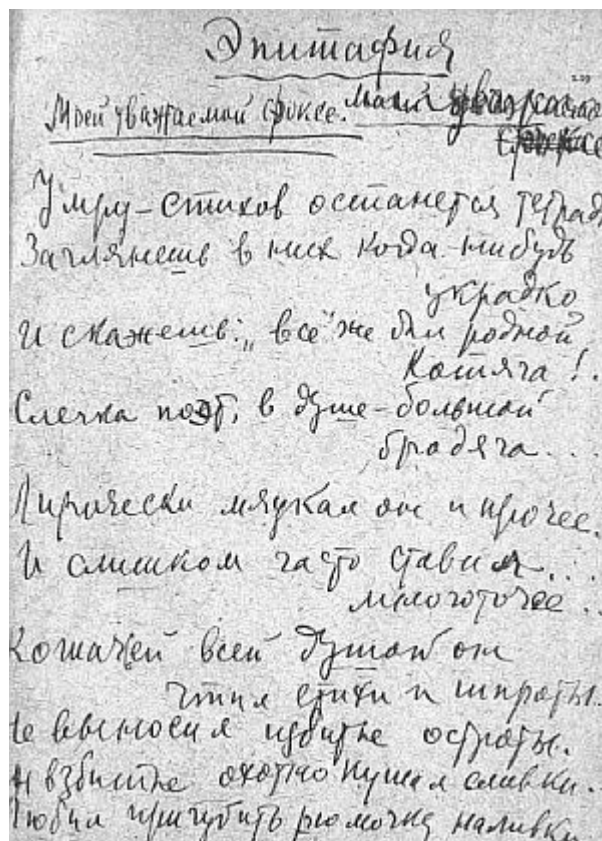 Эпитафия
Моей уважаемой фоксе. Моей уважаемой
фоксе
Умру – стихов останется тетрадь
Заглянешь в них когда-нибудь
украдко
И скажешь: „всё же был родной
Котяга!..
Слегка поэт, в душе – большой
бродяга...
Лирически мяукал он и прочее.
И слишком часто ставил...
многоточее..
Кошачей всей душой он
чтил стихи и шпроты.
Не выносил избитые остроты.
И взбитые охотно кушал сливки.
Любил пригубить рюмочку наливки